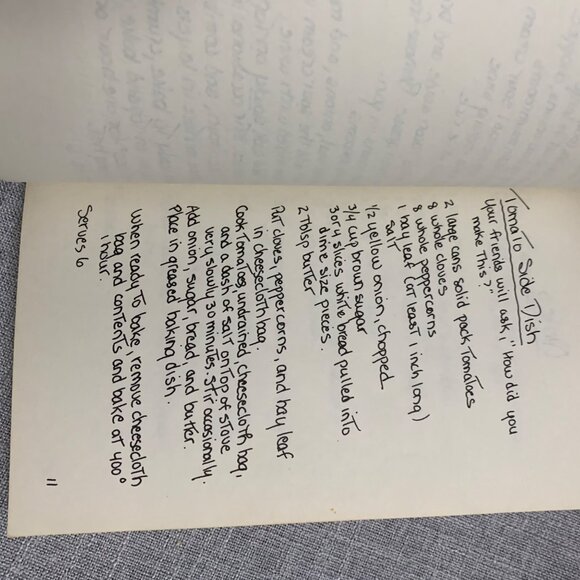 Tomato Side Dish
Your friends will ask, "How did you
make This?"
2 large cans solid pack Tomatoes
8 whole cloves
8 whole peppercorns
1 bay leaf (at least 1 inch long)
salt
1/2 yellow onion, chopped
3/4 cup brown sugar
3 or 4 slices white bread pulled into
dime size pieces.
2 Tblsp butter
Put cloves, peppercorns, and bay leaf
in cheesecloth bag.
Cook Tomatoes, undrained, cheesecloth bag,
and a dash of salt on top of stove
very slowly 30 minutes, stir occasionally.
Add onion, sugar, bread and butter.
Place in greased baking dish.
When ready to bake, remove cheesecloth
bag and contents and bake at 400°
1 hour.
Serves 6
11